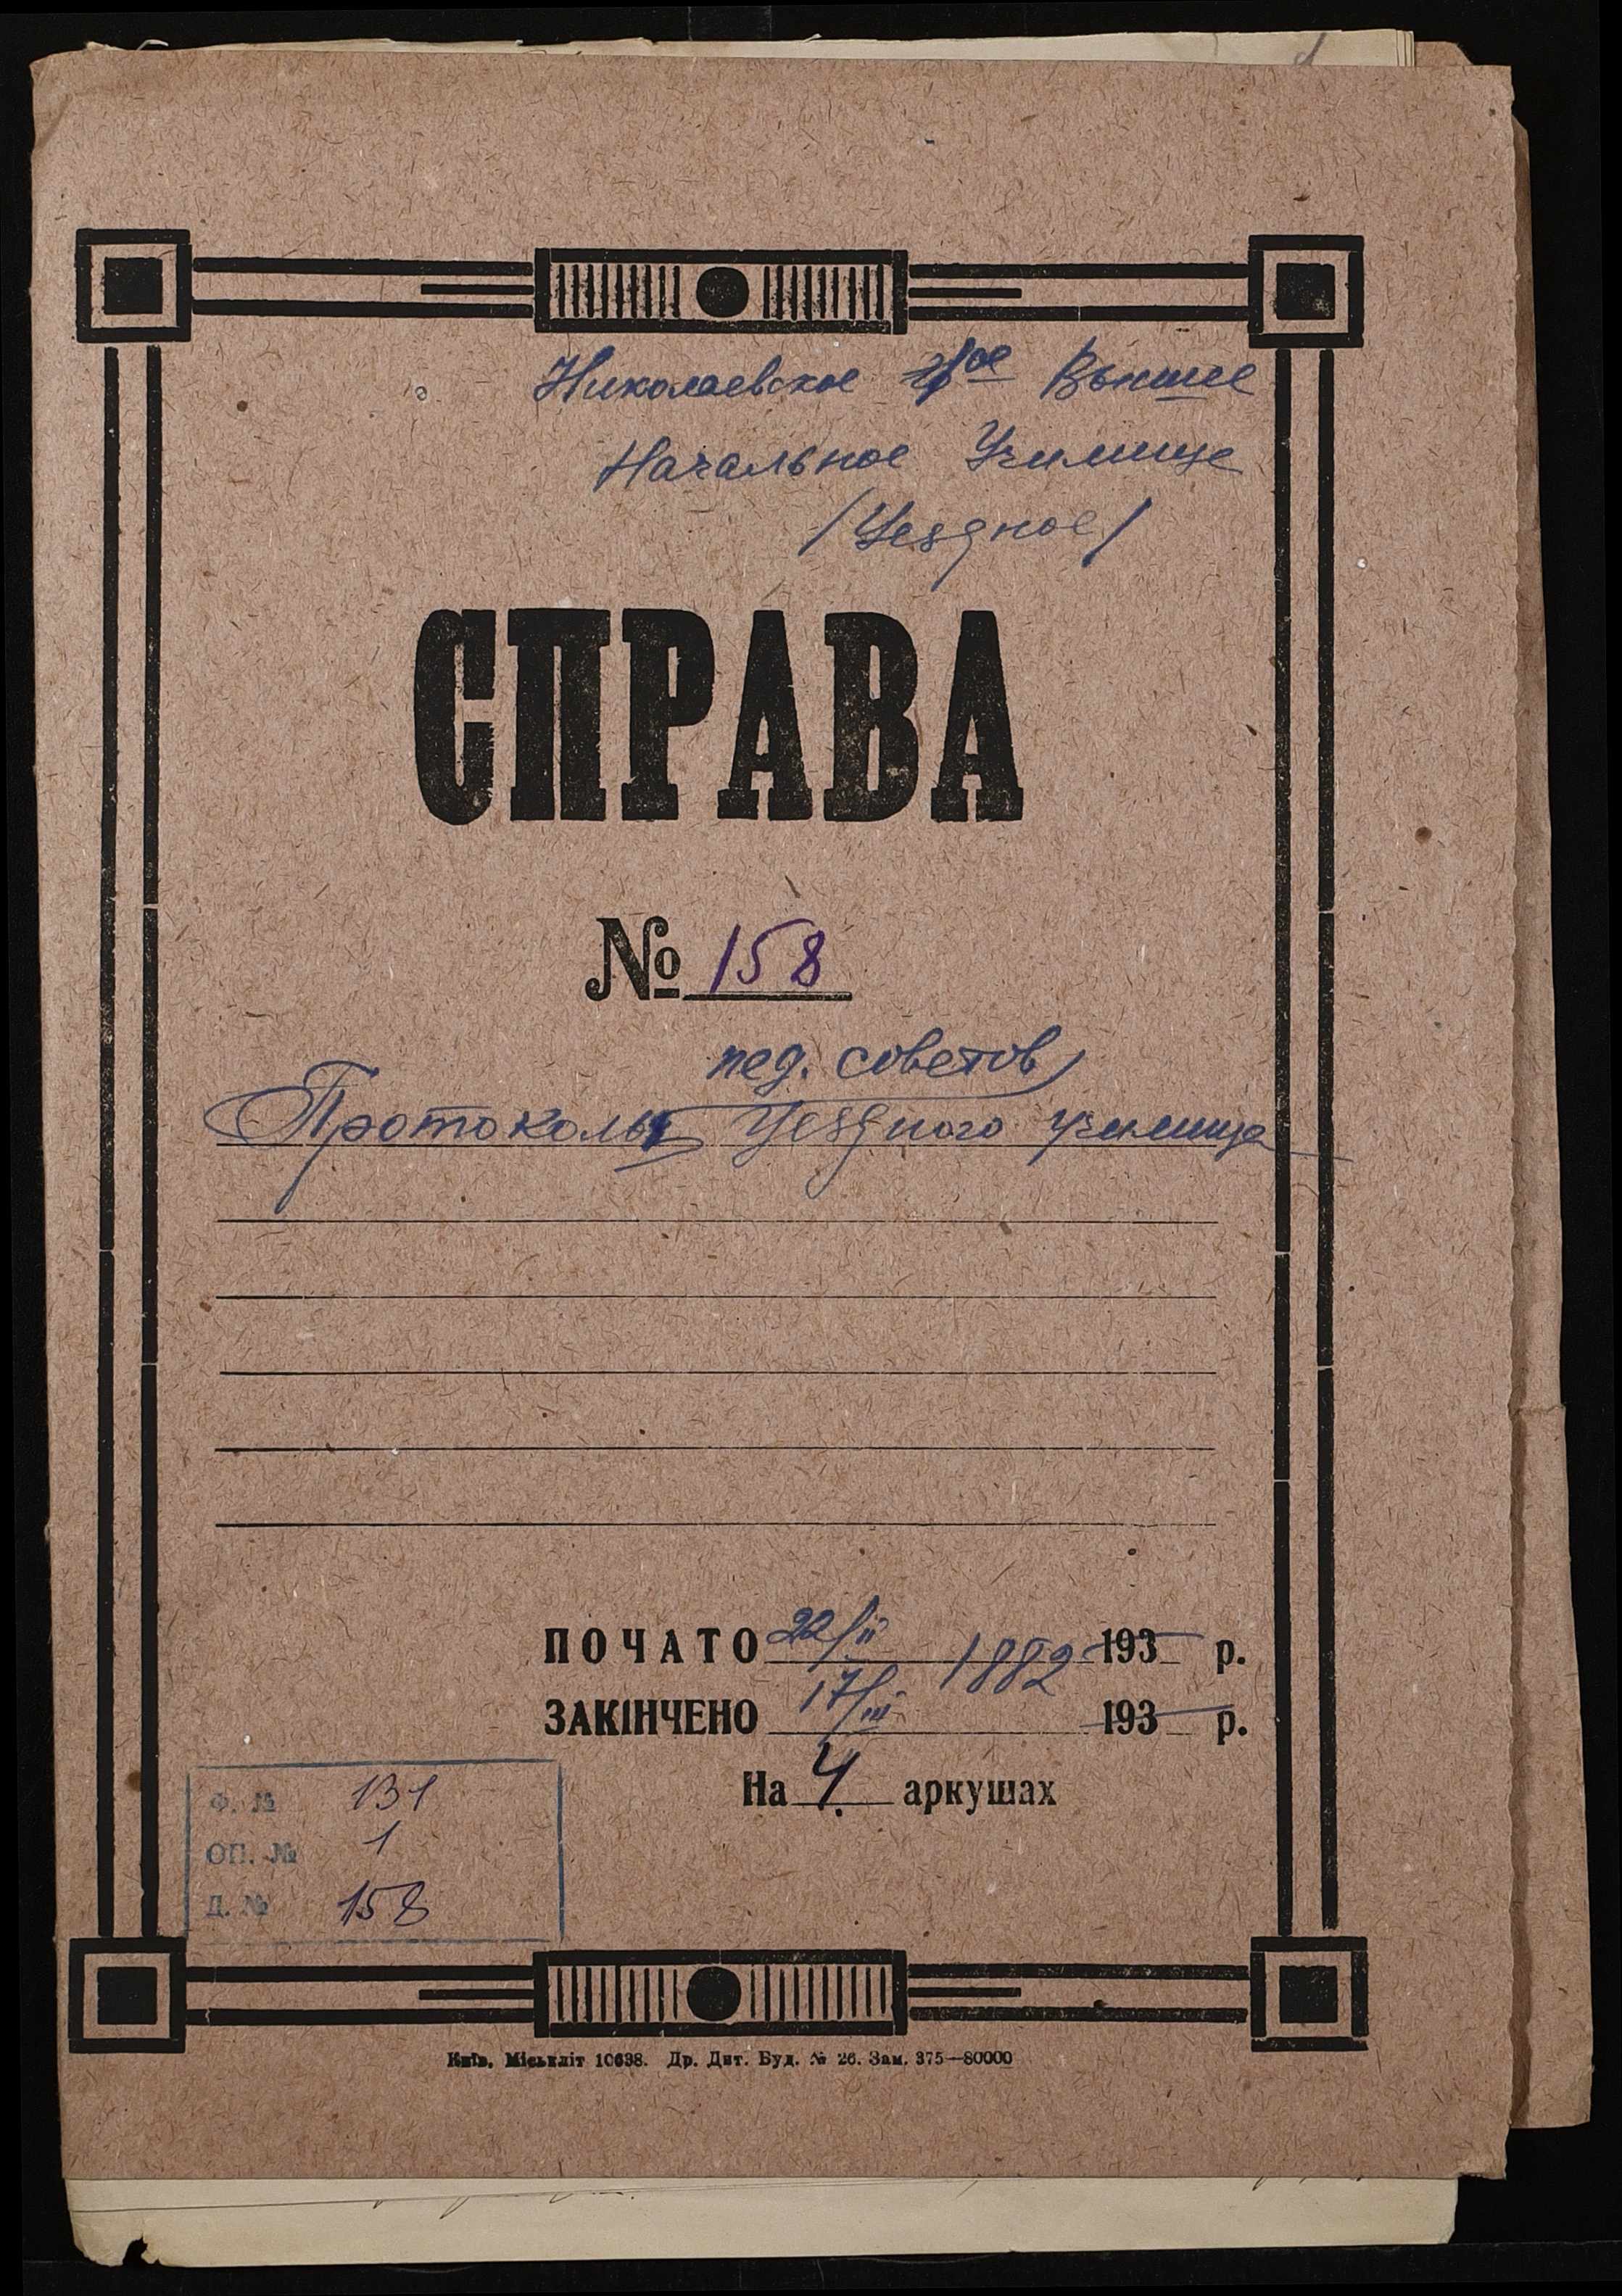 Николаевское ое Высшее
Начальное Училище
/Уездное/
СПРАВА
№ 158
пед. советов
Протоколы Уездного училища
ПОЧАТО 22/II 1882 193 р.
ЗАКІНЧЕНО 17/III 193 р.
На 4. аркушах
Ф. № 131
ОП. № 1
Д. № 158
Київ. Міськліт 10638. Др. Дит. Буд. № 26. Зам. 375—80000